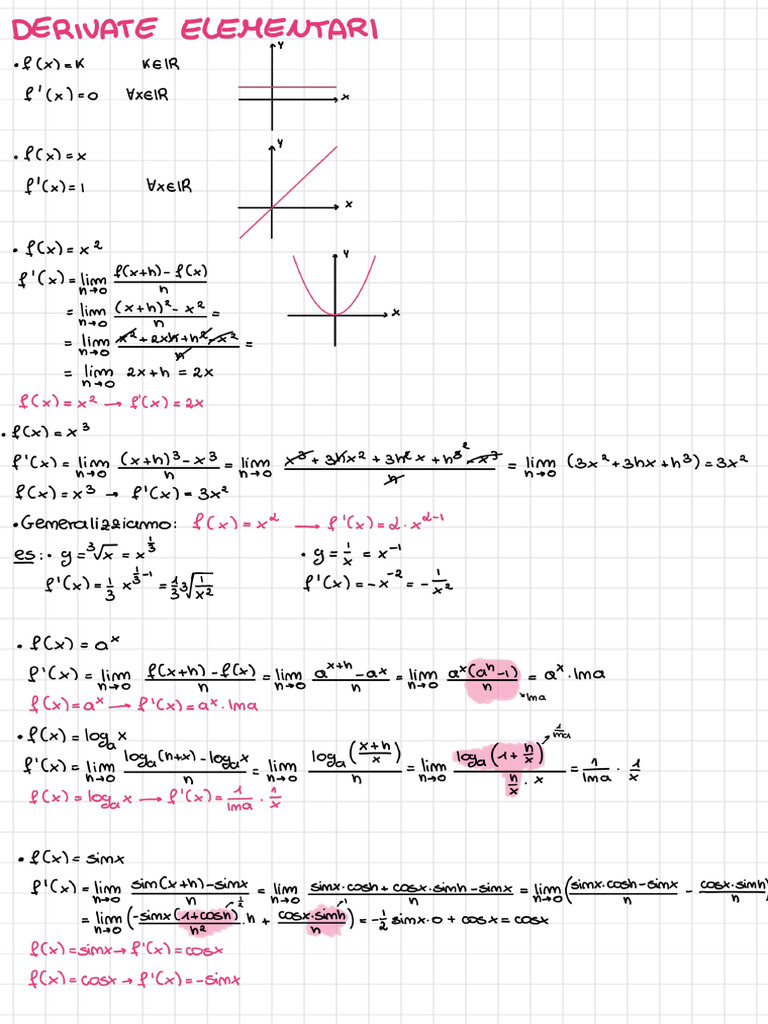 DERIVATE ELEMENTARI
• f(x) = K K∈IR
f'(x) = 0 ∀x∈IR
y
x
• f(x) = x
f'(x) = 1 ∀x∈IR
y
x
• f(x) = x²
f'(x) = lim h→0 (f(x+h) - f(x))/h
= lim h→0 ((x+h)² - x²)/h =
= lim h→0 (x² + 2xh + h² - x²)/h =
= lim h→0 2x+h = 2x
f(x) = x² → f'(x) = 2x
y
x
• f(x) = x³
f'(x) = lim h→0 ((x+h)³ - x³)/h = lim h→0 (x³ + 3hx² + 3h²x + h³ - x³)/h = lim h→0 (3x² + 3hx + h³) = 3x²
f(x) = x³ → f'(x) = 3x²
• Generalizziamo: f(x) = x^α → f'(x) = α · x^(α-1)
es: • y = ³√x = x^(1/3) • y = 1/x = x⁻¹
f'(x) = 1/3 x^(1/3 - 1) = 1/3 ³√(1/x²) f'(x) = -x⁻² = -1/x²
• f(x) = aˣ
f'(x) = lim h→0 (f(x+h) - f(x))/h = lim h→0 (a^(x+h) - ax)/h = lim h→0 (aˣ(aʰ-1))/h = aˣ · lna
→lna
f(x) = aˣ → f'(x) = aˣ · lna
• f(x) = logₐx
f'(x) = lim h→0 (logₐ(h+x) - logₐx)/h = lim h→0 logₐ((x+h)/x)/h = lim h→0 logₐ(1 + h/x)/(h/x · x) = 1/lna · 1/x
→1/lna
f(x) = logₐx → f'(x) = 1/lna · 1/x
• f(x) = sinx
f'(x) = lim h→0 (sin(x+h) - sinx)/h = lim h→0 (sinx·cosh + cosx·sinh - sinx)/h = lim h→0 ((sinx·cosh - sinx)/h - (cosx·sinh)/h
= lim h→0 (-sinx(1+cosh)/h² →1/2 · h + (cosx·sinh)/h →1) = -1/2 sinx · 0 + cosx = cosx
f(x) = sinx → f'(x) = cosx
f(x) = cosx → f'(x) = -sinx